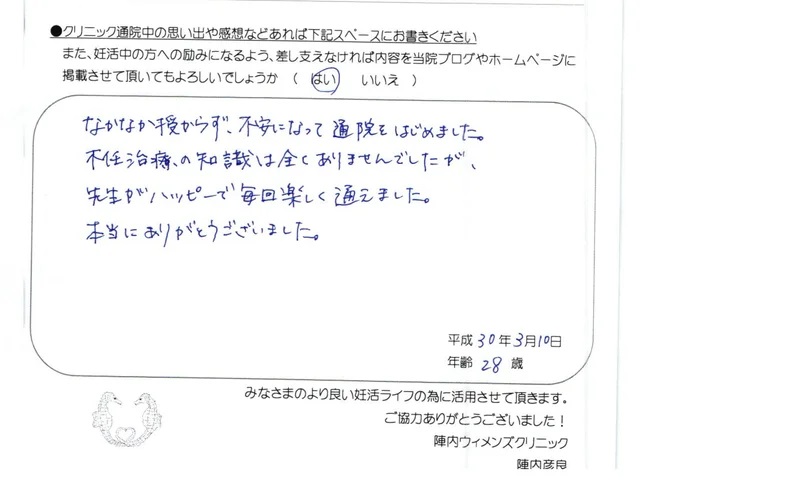 ●クリニック通院中の思い出や感想などあれば下記スペースにお書きください
また、妊活中の方への励みになるよう、差し支えなければ内容を当院ブログやホームページに
掲載させて頂いてもよろしいでしょうか （ はい いいえ ）
なかなか授からず、不安になって通院をはじめました。
不任治療、の知識は全くありませんでしたが、
先生がハッピーで毎回楽しく通えました。
本当にありがとうございました。
平成 30 年 3月 10日
年齢 28 歳
みなさまのより良い妊活ライフの為に活用させて頂きます。
ご協力ありがとうございました！
陣内ウィメンズクリニック
陣内彦良